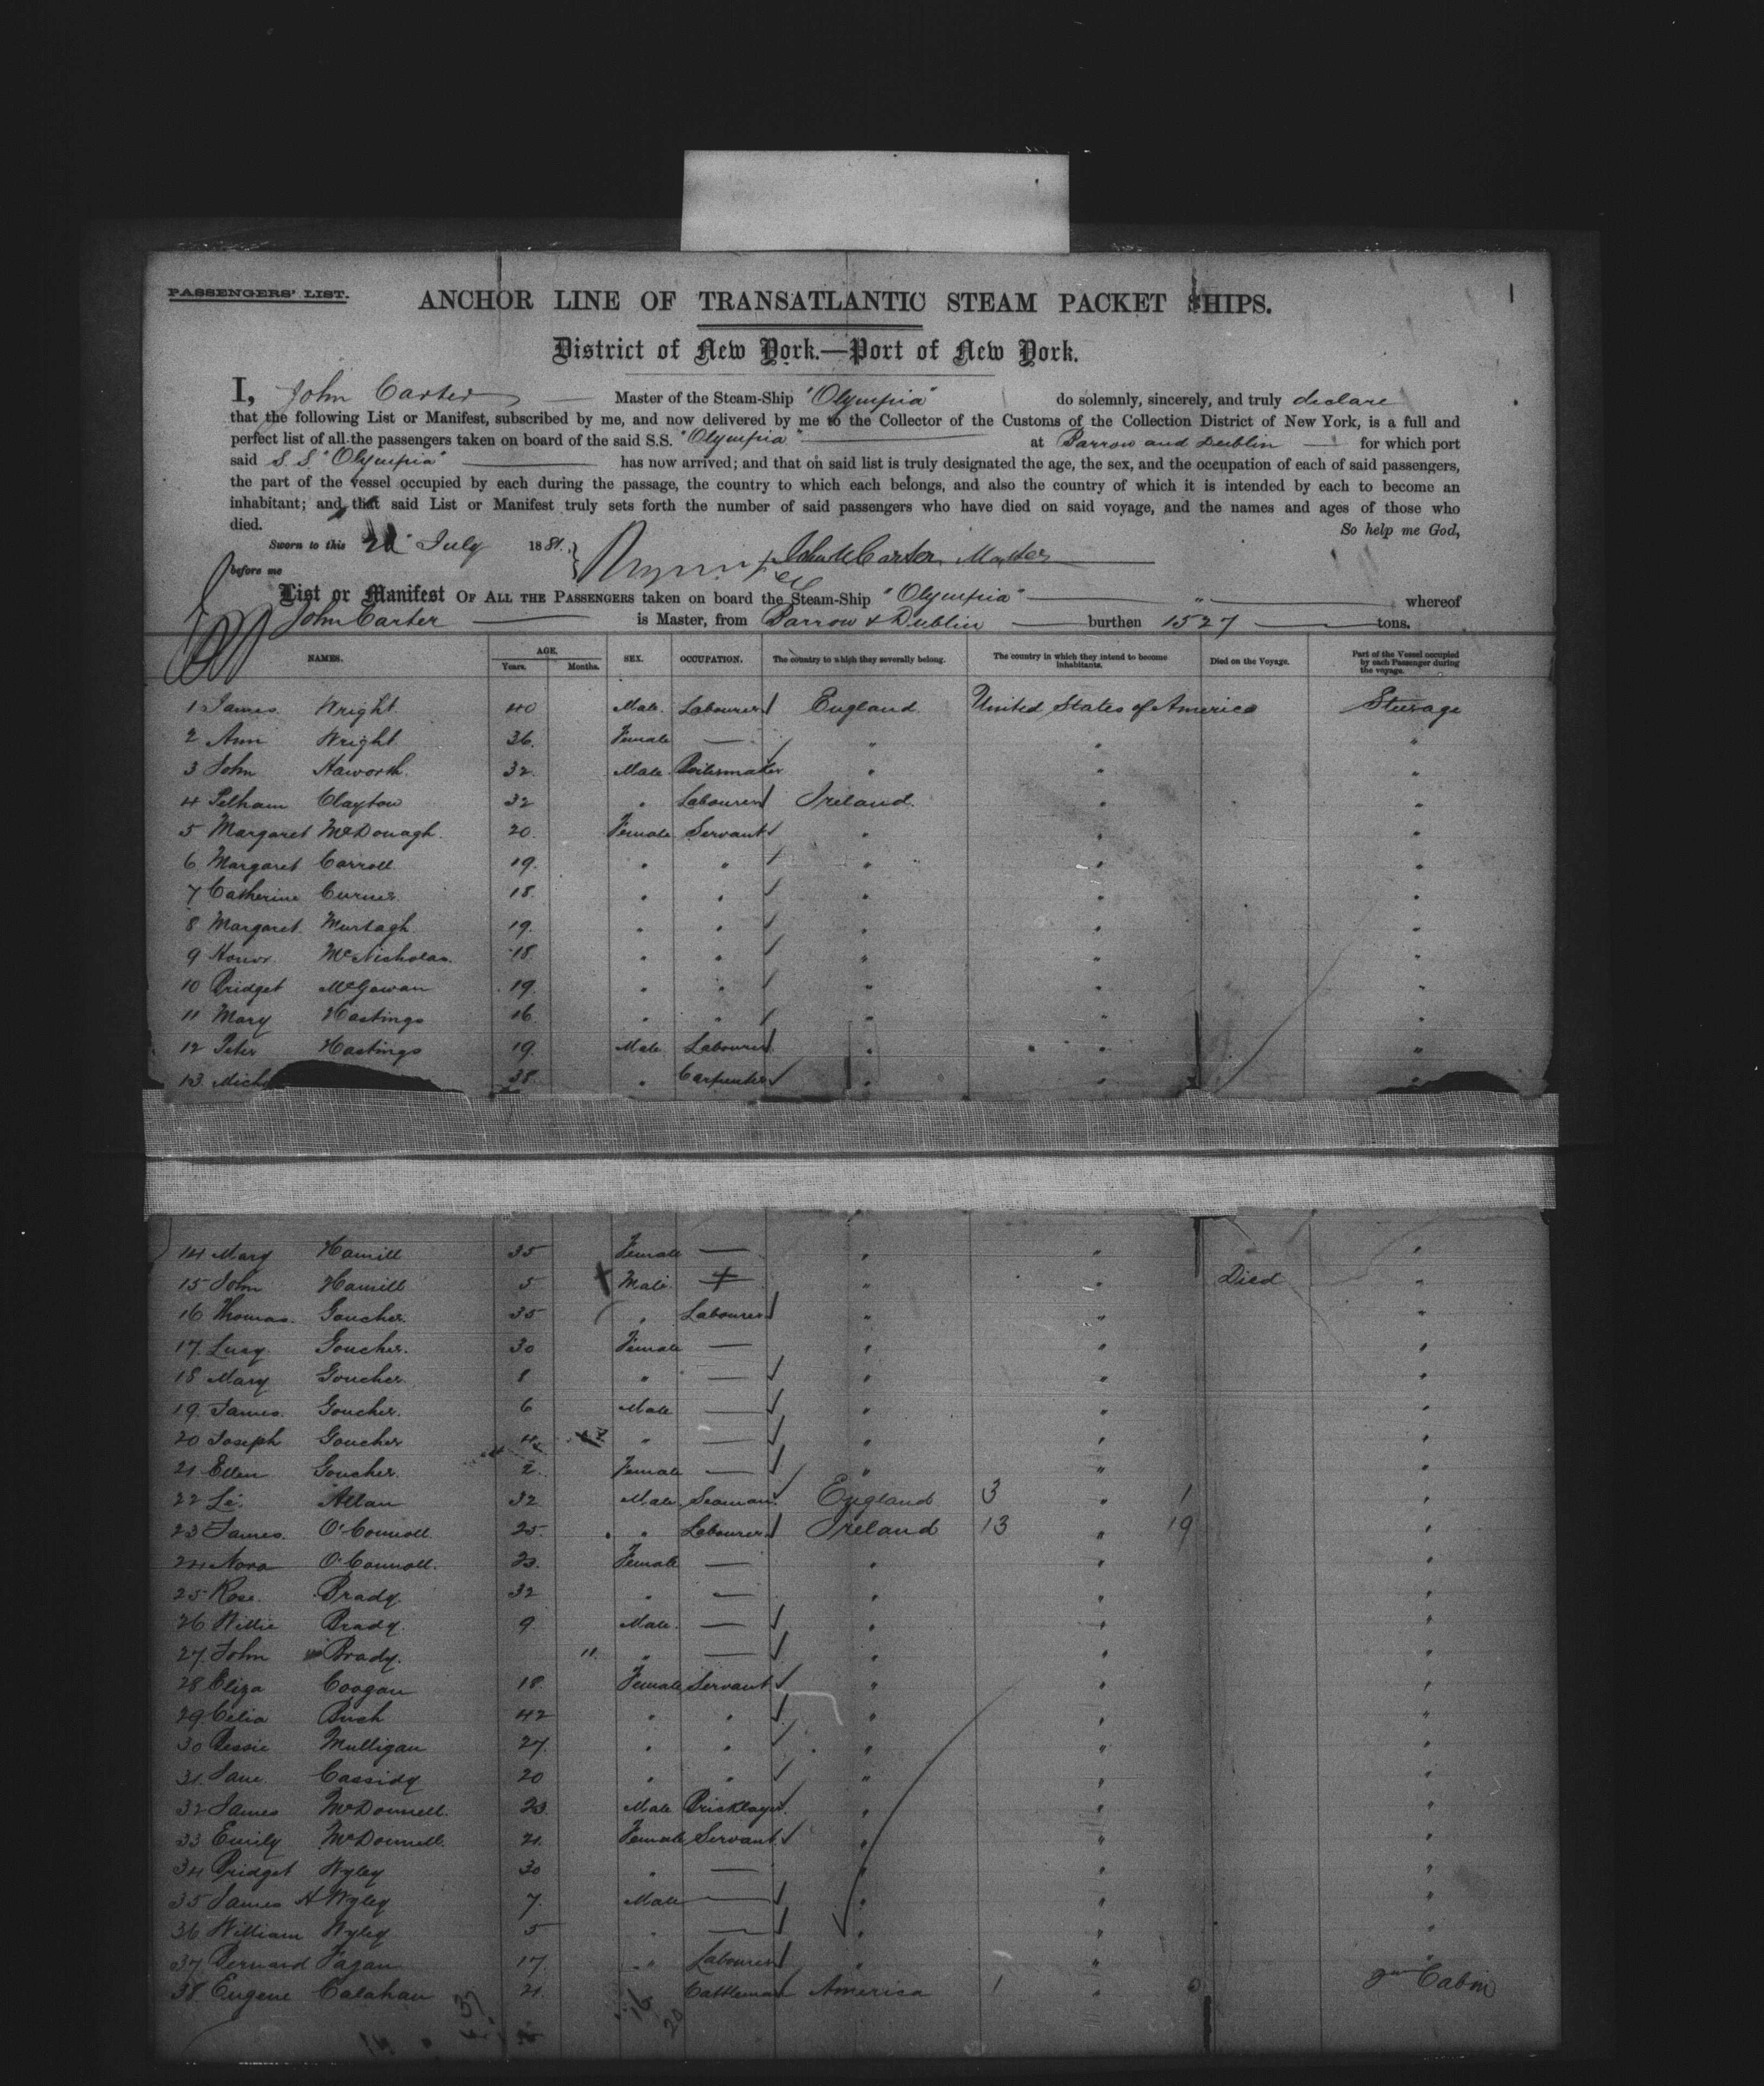 PASSENGERS' LIST.
1
ANCHOR LINE OF TRANSATLANTIC STEAM PACKET SHIPS.
District of New York.—Port of New York.
I, John Carter Master of the Steam-Ship "Olympia" do solemnly, sincerely, and truly declare
that the following List or Manifest, subscribed by me, and now delivered by me to the Collector of the Customs of the Collection District of New York, is a full and
perfect list of all the passengers taken on board of the said S.S. "Olympia" at Barrow and Dublin for which port
said S.S. "Olympia" has now arrived; and that on said list is truly designated the age, the sex, and the occupation of each of said passengers,
the part of the vessel occupied by each during the passage, the country to which each belongs, and also the country of which it is intended by each to become an
inhabitant; and that said List or Manifest truly sets forth the number of said passengers who have died on said voyage, and the names and ages of those who
died. So help me God,
Sworn to this July 1881. Carter, Master
before me
List or Manifest OF ALL THE PASSENGERS taken on board the Steam-Ship "Olympia" " whereof
John Carter is Master, from Barrow & Dublin burthen 1527 tons.
NAMES. AGE. Years. Months. SEX. OCCUPATION. The country to which they severally belong. The country in which they intend to become inhabitants. Died on the Voyage. Part of the Vessel occupied by each Passenger during the voyage.
1 James Wright 40 Male Labourer England United States of America Steerage
2 Ann Wright 36 Female — " " "
3 John Haworth 32 Male Boilermaker " " "
4 Pelham Clayton 32 " Labourer Ireland " "
5 Margaret McDonagh 20 Female Servant " " "
6 Margaret Carroll 19 " " " " "
7 Catherine 18 " " " " "
8 Margaret Murtagh 19 " " " " "
9 Honor McNicholas 18 " " " " "
10 Bridget McGowan 19 " " " " "
11 Mary Hastings 16 " " " " "
12 Peter Hastings 19 Male Labourer " " "
13 Mich 38 " Carpenter " " "
14 Mary Hamill 35 Female — " " "
15 John Hamill 5 Male — " " Died "
16 Thomas Goucher 35 " Labourer " " "
17 Lucy Goucher 30 Female — " " "
18 Mary Goucher 8 " — " " "
19 James Goucher 6 Male — " " "
20 Joseph Goucher 4 " — " " "
21 Ellen Goucher 2 Female — " " "
22 Allan 32 Male Seaman England 3 " 1 "
23 James O'Connell 25 " Labourer Ireland 13 " 19 "
24 Nora O'Connell 23 Female — " " "
25 Rose Brady 32 " — " " "
26 Willie Brady 9 Male — " " "
27 John Brady 11 " — " " "
28 Eliza Coogan 18 Female Servant " " "
29 Celia 42 " " " " "
30 Bessie Mulligan 27 " " " " "
31 Jane Cassidy 20 " " " " "
32 James McDonnell 23 Male Bricklayer " " "
33 Emily McDonnell 21 Female Servant " " "
34 Bridget Wyley 30 " — " " "
35 James H Wyley 7 Male — " " "
36 William Wyley 5 " — " " "
37 Bernard Fagan 17 " Labourer " " "
38 Eugene Calahan 21 Cattleman America 1 " Cabin
20